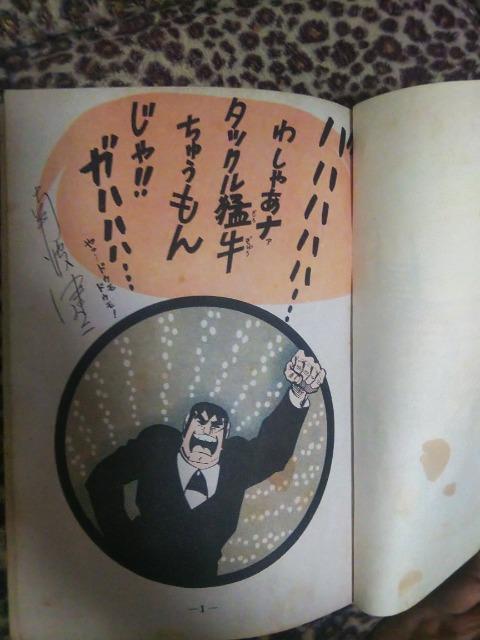 ガハハハハ…
わしゃあナァ
タックル猛牛
もうぎゅう
ちゅうもん
じゃ!!
ガハハハ…
やァードウモ
ドウモ!
—1—